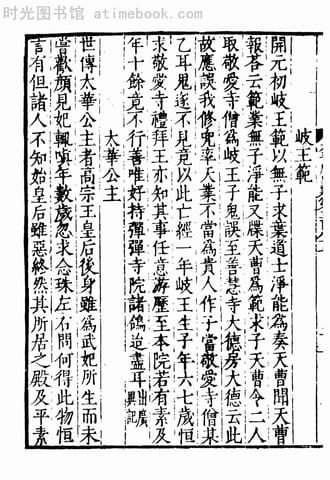 时光图书馆 - atimebook.com
岐王範
開元初岐王範以無子求葉道士淨能為奏天曹聞天曹
報荅云範業無子淨能又牒天曹為範求子天曹令二人
取敬愛寺僧為岐王子鬼誤至善慧寺大德房大德云此
故應誤我修兜率天業不當為貴人作子當敬愛寺僧某
乙耳鬼遂不見竟以此亡經一年岐王生子年六七歲恒
求敬愛寺禮拜王亦知其事任意游歷至本院若有素及
年十餘竟不行善唯好持彈彈寺院諸鴿迨盡耳出廣異記
太華公主
世傳太華公主者高宗王皇后後身雖為武妃所生而未
嘗歡顏見妃輒嗔年數歲忽求念珠左右問何得此物恒
言有但諸人不知始皇后雖惡終然其所居之殿及平素
www.atimebook.com